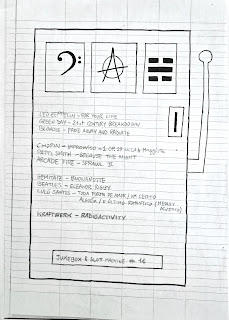 LED ZEPPELIN - FOR YOUR LIFE
GREEN DAY - 21st CENTURY BREAKDOWN
BLONDIE - FADE AWAY AND RADIATE
CHOPIN - IMPROVVISO n 1 OP. 29 IN LAb Maggiore
PATTI SMITH - BECAUSE THE NIGHT
ARCADE FIRE - SPRAWL II
GEMITAIZ - BUONANOTTE
BEATLES - ELEANOR RIGBY
LULU SANTOS - TODA FORMA DE AMOR / UM CERTO
ALGUÉM / O ÚLTIMO ROMÂNTICO (MEDLEY
ACUSTICO)
KRAFTWERK - RADIOACTIVITY
JUKEBOX & SLOT MACHINE # 16